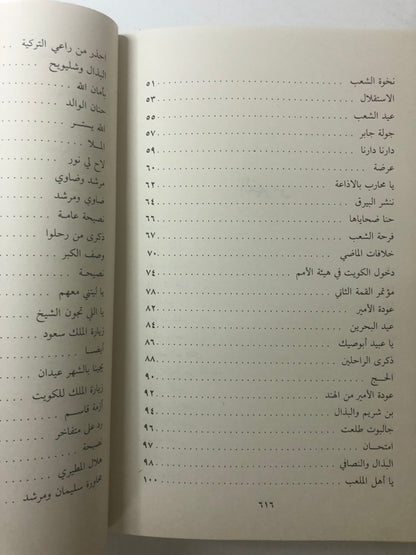 نخوة الشعب ٥١
الاستقلال ٥٣
عيد الشعب ٥٥
جولة جابر ٥٧
دارنا دارنا ٥٩
عرضة ٦٠
يا محارب بالاذاعة ٦٢
ننشر البيرق ٦٤
حنا ضحاياها ٦٦
فرحة الشعب ٦٧
خلافات الماضي ٧٠
دخول الكويت في هيئة الأمم ٧٤
مؤتمر القمة الثاني ٧٨
عودة الأمير ٨٢
عيد البحرين ٨٤
يا عبيد أبوصبك ٨٦
ذكرى الراحلين ٨٨
الحـج ٩٠
عودة الأمير من الهند ٩٢
بن شريم والبذال ٩٤
جالبوت طلعت ٩٦
امتحـان ٩٧
البذال والنصافي ٩٨
يا أهل الملعب ١٠٠
٦١٦
احذر من راعي التركية
البذال وشليويح
يأمان الله
حنان الوالد
الله يستـر
المـلا
لاح لي نور
مرشد وضاوي
ضاوي ومرشد
نصيحة عامـة
ذكرى من رحلوا
وصف الكبر
نصيحـة
يا ليتني معهم
يا اللي تجون الشيخ
زيارة الملك سعود
أيضـا
يجينا بالشهر عيدان
زيارة الملك للكويت
أزمة قاسـم
رد على متفاخر
نصيحـة
هلال المطيري
محاورة سليمان ومرشد